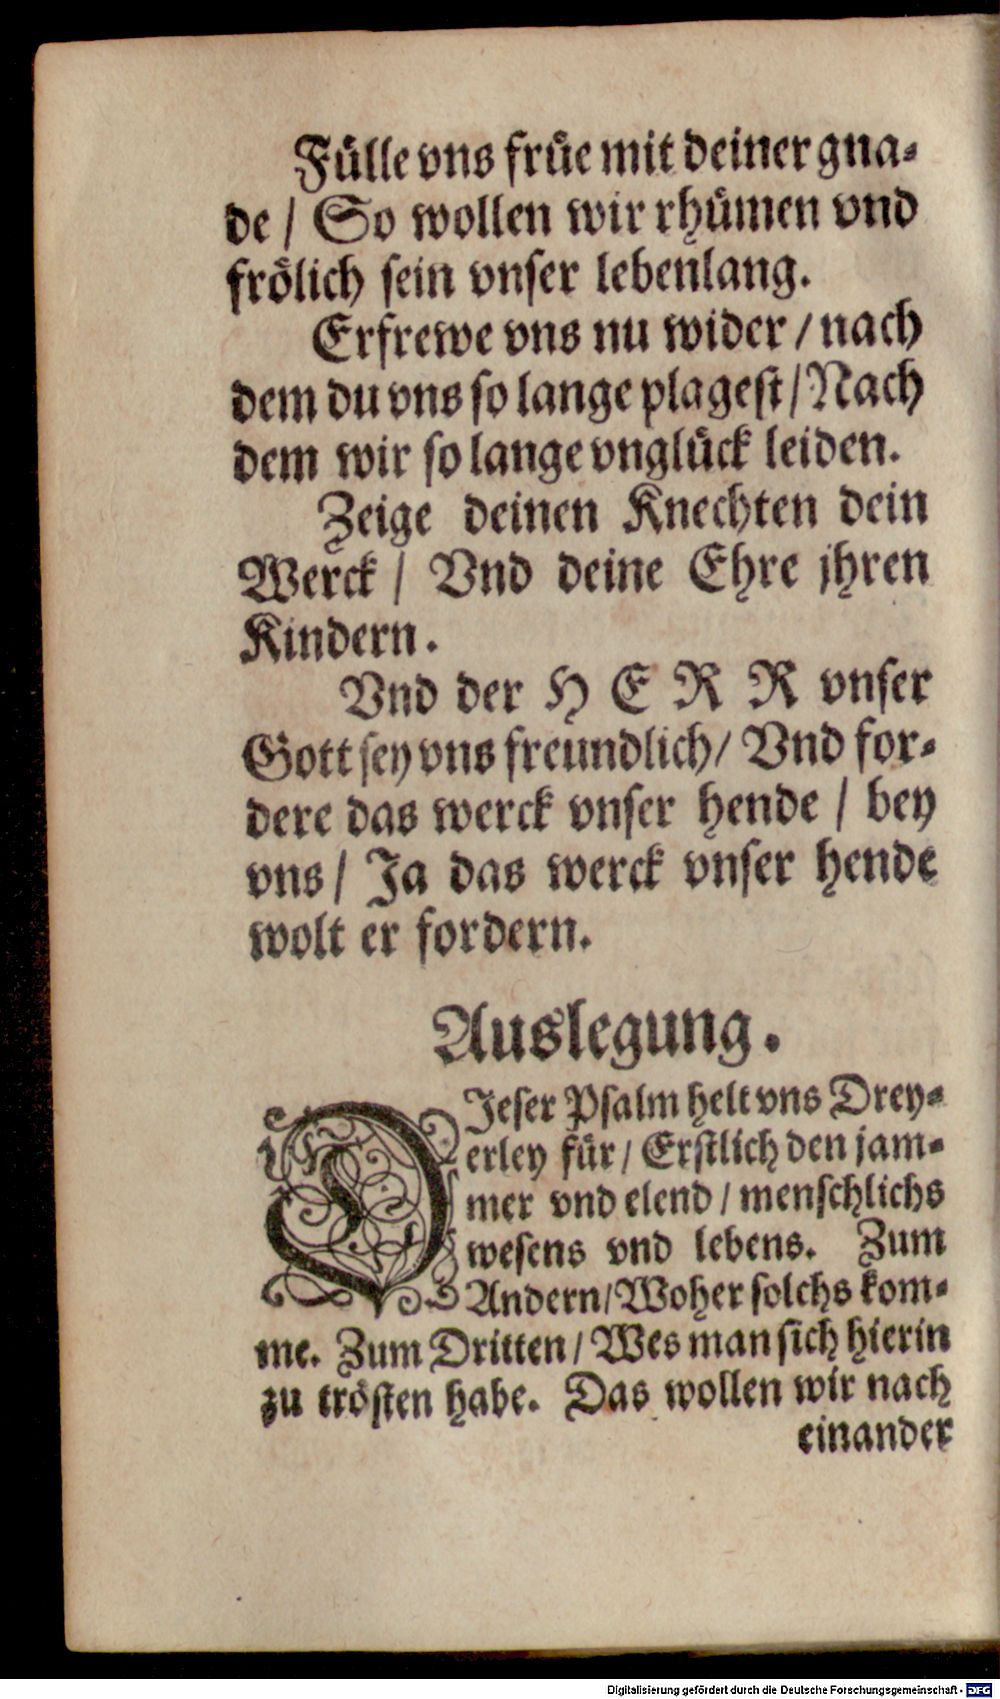 Fülle vns früe mit deiner gna⸗
de / So wollen wir rhümen vnd
frölich sein vnser lebenlang.
Erfrewe vns nu wider / nach
dem du vns so lange plagest / Nach
dem wir so lange vnglück leiden.
Zeige deinen Knechten dein
Werck / Vnd deine Ehre jhren
Kindern.
Vnd der HERR vnser
Gott sey vns freundlich / Vnd for⸗
dere das werck vnser hende / bey
vns / Ja das werck vnser hende
wolt er fordern.
Auslegung.
DJeser Psalm helt vns Drey⸗
erley für / Erstlich den jam⸗
mer vnd elend / menschlichs
wesens vnd lebens. Zum
Andern / Woher solchs kom⸗
me. Zum Dritten / Wes man sich hierin
zu trösten habe. Das wollen wir nach
einander
Digitalisierung gefördert durch die Deutsche Forschungsgemeinschaft - DFG